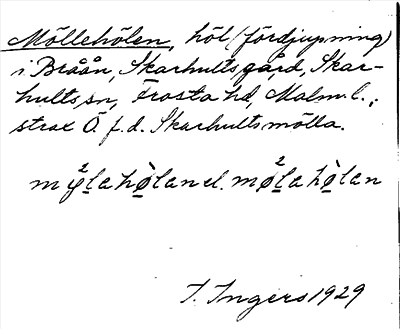 Möllehölen, höl (fördjupning)
i Bråån, Skarhultsgård, Skar-
hults sn, Frosta hd, Malm. l.;
strax Ö. f. d. Skarhultsmölla.
möl̲ahø̲̀lan el. mø̲l̲ahø̲̀lan
I. Ingers 1929